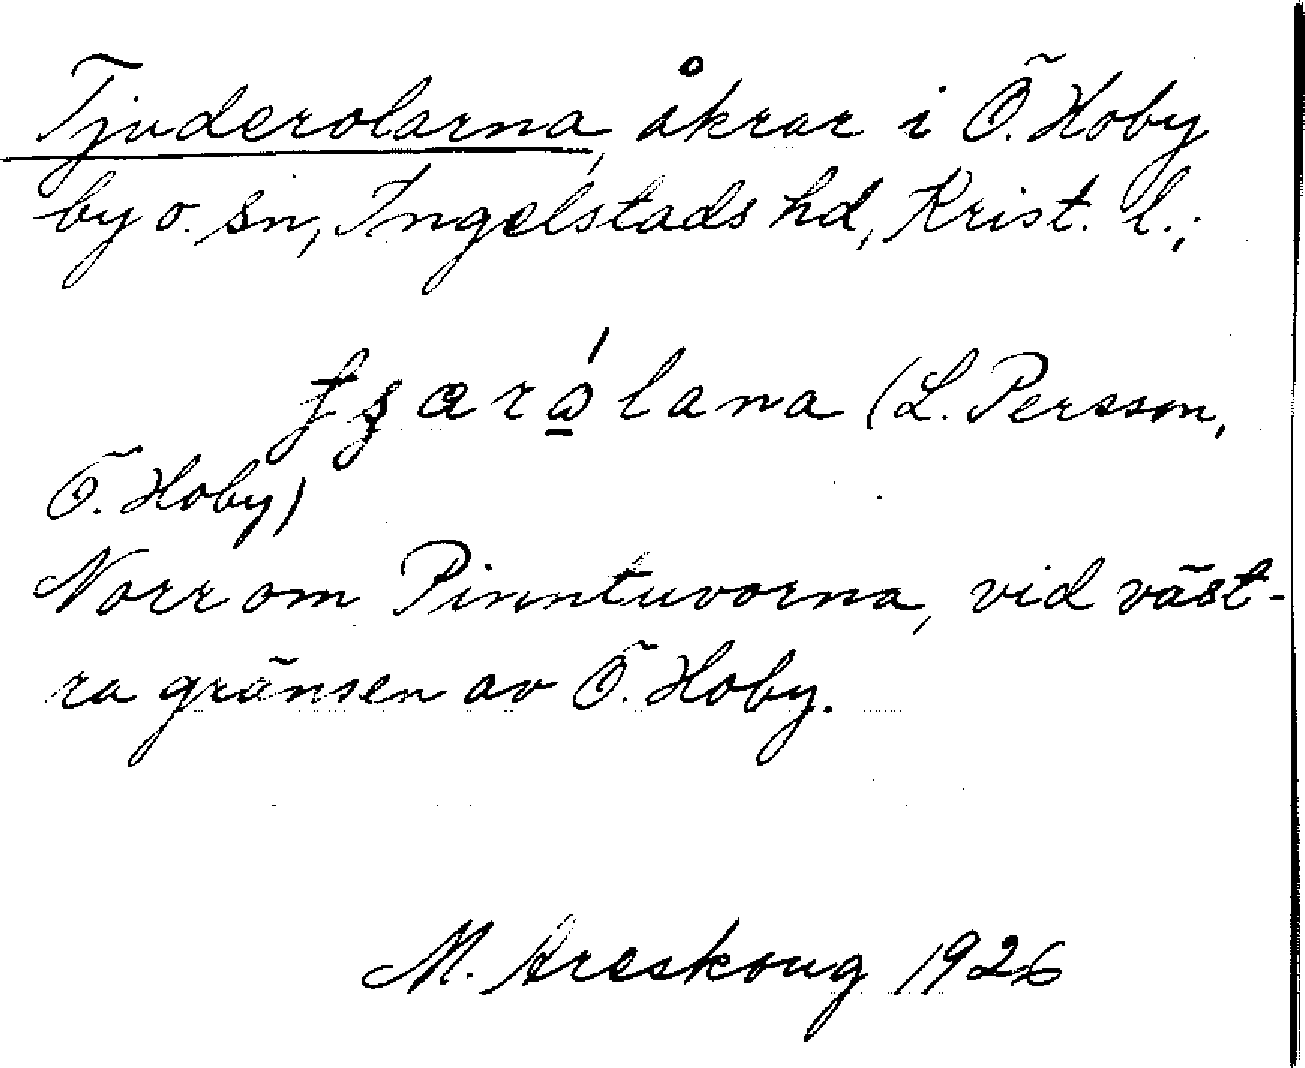 Tjuderolarna, åkrar i Ö. Hoby
by o. sn, Ingelstads hd, Krist. l.;
(L. Persson,
Ö. Hoby)
Norr om Pinntuvorna, vid väst-
ra gränsen av Ö. Hoby.
M. Areskoug 1926